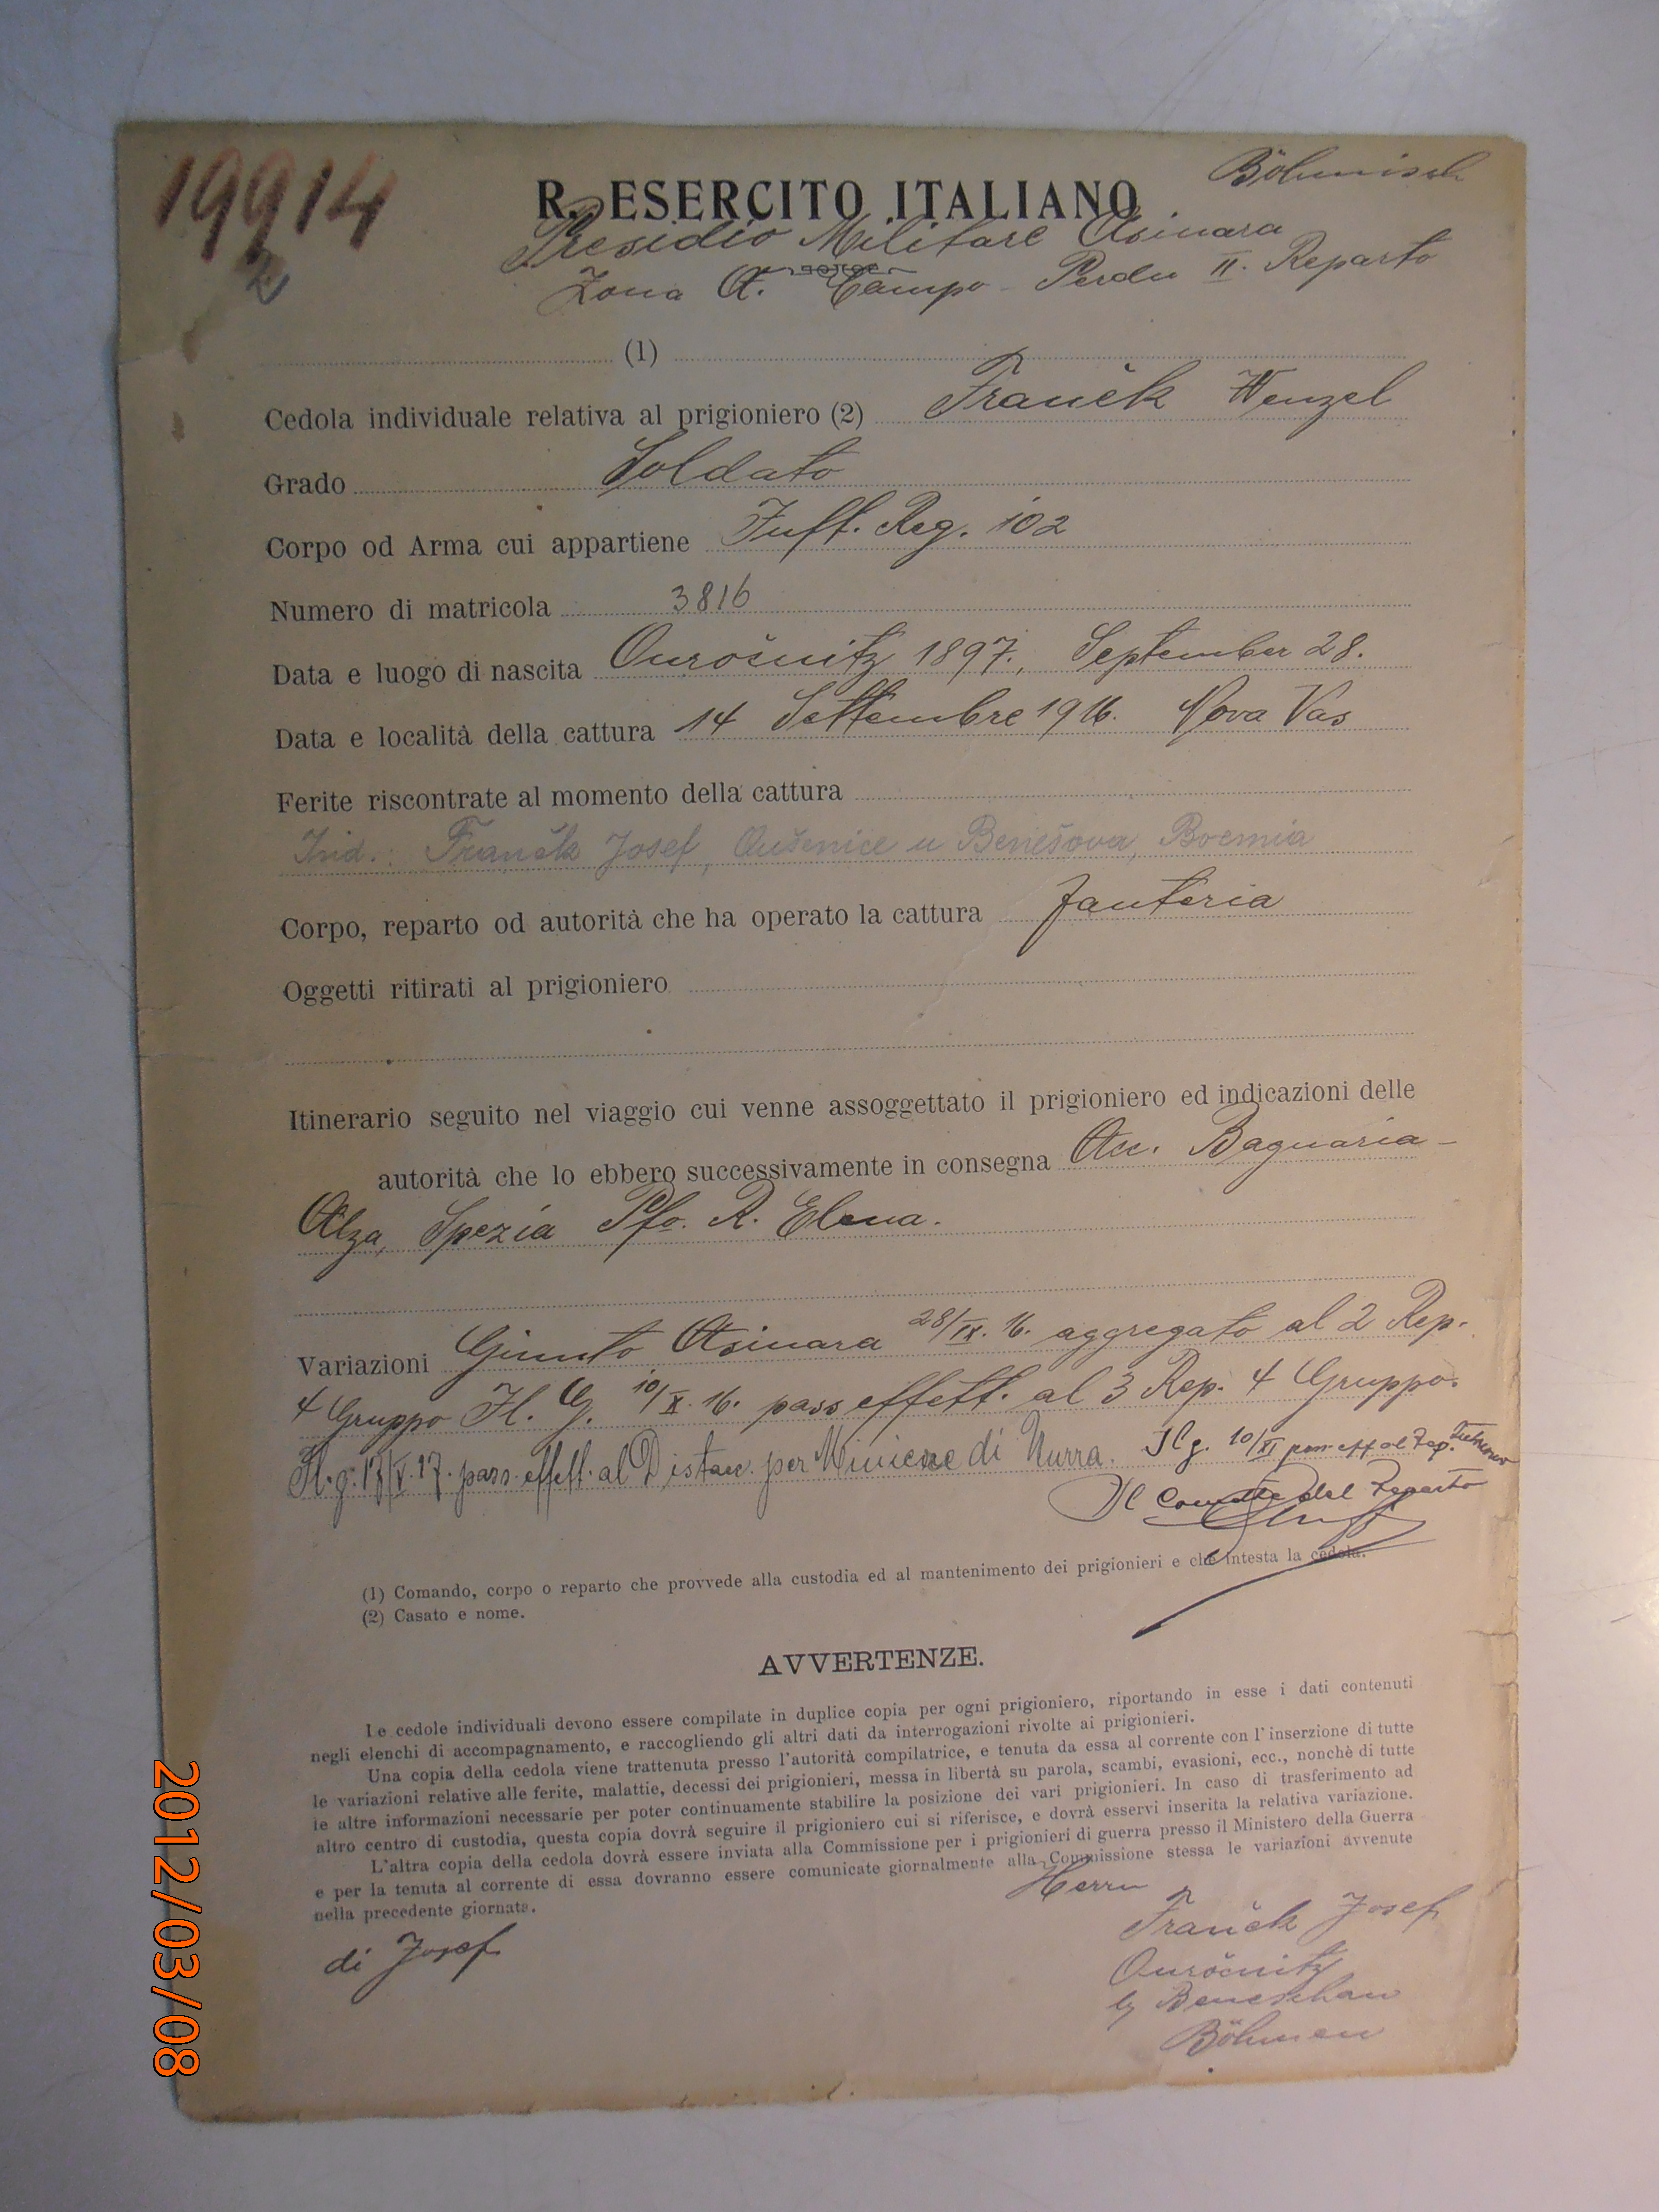 19914
2
Böhmisch
R. ESERCITO ITALIANO
Presidio Militare Asinara
Zona A. Campo Perdu II. Reparto
(1)
Cedola individuale relativa al prigioniero (2) Franěk Wenzel
Grado Soldato
Corpo od Arma cui appartiene Inft. Reg. 102
Numero di matricola 3816
Data e luogo di nascita Ouročnitz 1897., September 28.
Data e località della cattura 14 Settembre 1916. Nova Vas
Ferite riscontrate al momento della cattura
Ind.: Franěk Josef, Oušenice u Benešova, Boemia
Corpo, reparto od autorità che ha operato la cattura fanteria
Oggetti ritirati al prigioniero
Itinerario seguito nel viaggio cui venne assoggettato il prigioniero ed indicazioni delle
autorità che lo ebbero successivamente in consegna Acc. Bagnaria-
Alza, Spezia Pfo. R. Elena.
Variazioni Giunto Asinara 28/IX. 16. aggregato al 2 Rep.
4 Gruppo Il. G. 10/X. 16. pass effett. al 3 Rep. 4 Gruppo.
Il. g. 17/V. 17. pass. effett. al Distac. per Miniere di Nurra. Il g. 10/XI pass eff al Rep.
Il Comdte del Reparto
(1) Comando, corpo o reparto che provvede alla custodia ed al mantenimento dei prigionieri e che intesta la cedola.
(2) Casato e nome.
AVVERTENZE.
Le cedole individuali devono essere compilate in duplice copia per ogni prigioniero, riportando in esse i dati contenuti
negli elenchi di accompagnamento, e raccogliendo gli altri dati da interrogazioni rivolte ai prigionieri.
Una copia della cedola viene trattenuta presso l'autorità compilatrice, e tenuta da essa al corrente con l'inserzione di tutte
le variazioni relative alle ferite, malattie, decessi dei prigionieri, messa in libertà su parola, scambi, evasioni, ecc., nonchè di tutte
le altre informazioni necessarie per poter continuamente stabilire la posizione dei vari prigionieri. In caso di trasferimento ad
altro centro di custodia, questa copia dovrà seguire il prigioniero cui si riferisce, e dovrà esservi inserita la relativa variazione.
L'altra copia della cedola dovrà essere inviata alla Commissione per i prigionieri di guerra presso il Ministero della Guerra
e per la tenuta al corrente di essa dovranno essere comunicate giornalmente alla Commissione stessa le variazioni avvenute
nella precedente giornata.
di Josef
Herrn
Franěk Josef
Ouročnitz
by Beneschau
Böhmen
2012/03/08